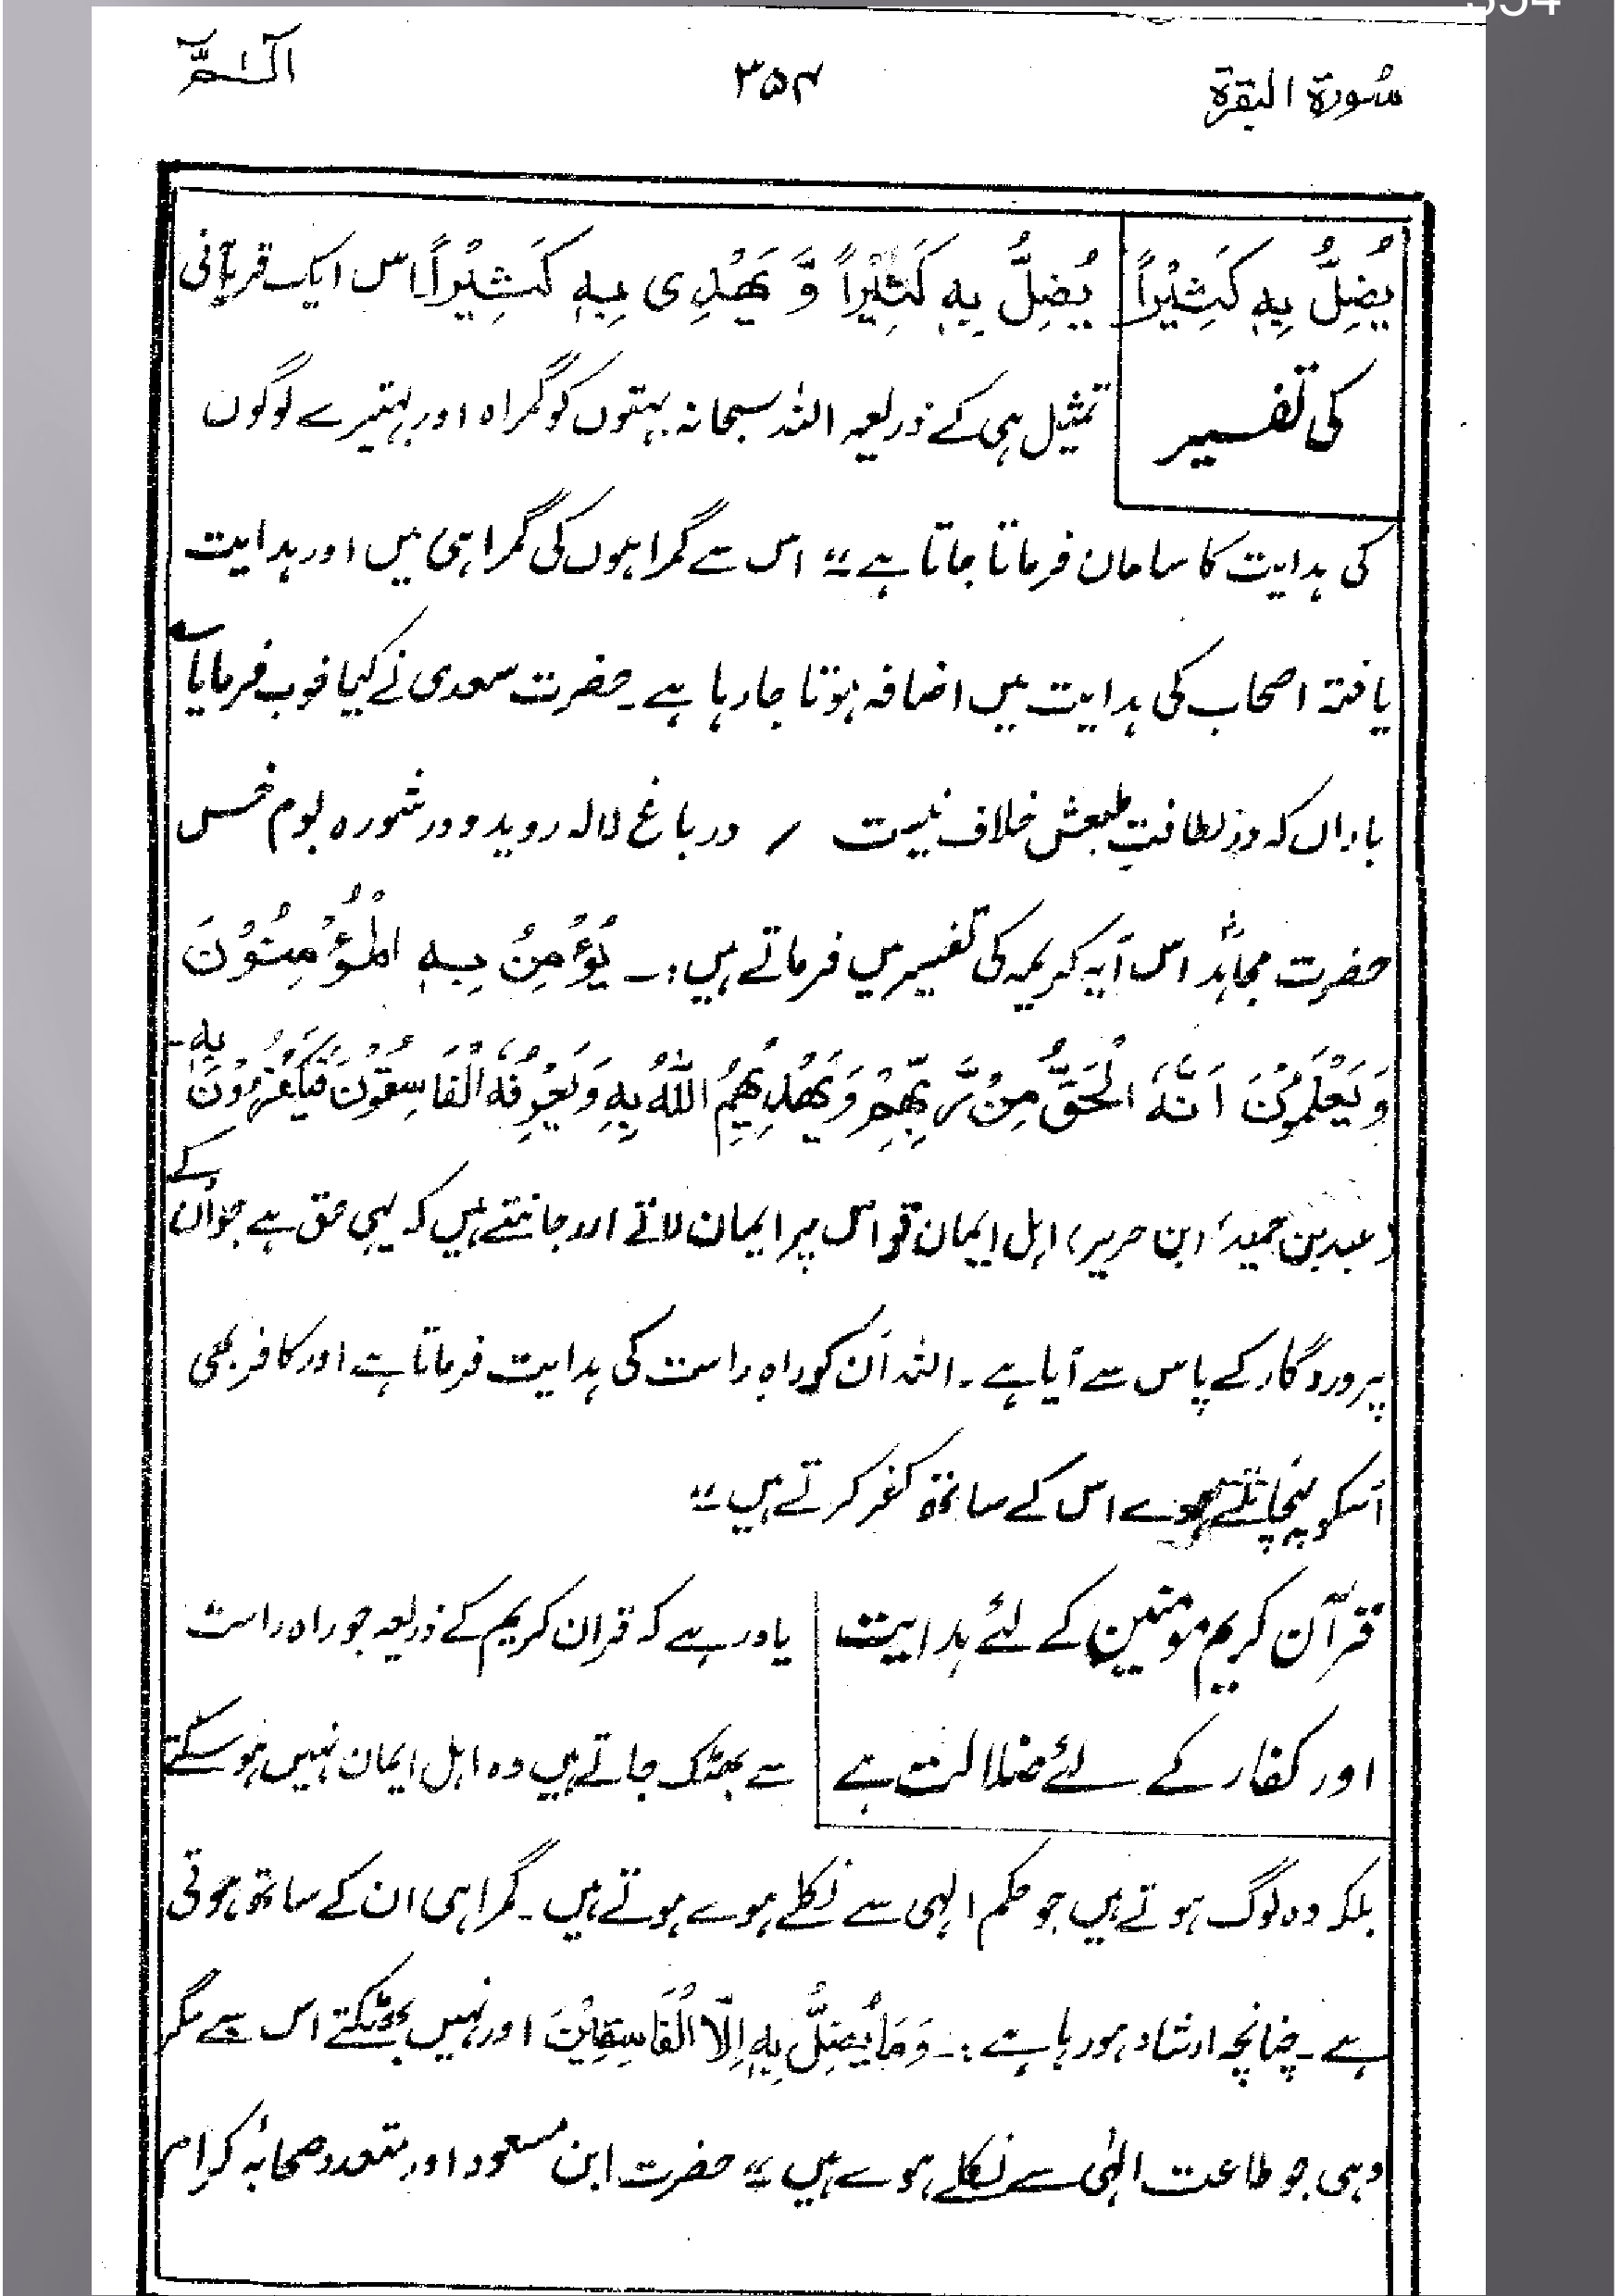 354
سُورۃ البقرۃ ۳۵۴ الٓـمّٓ
یُضِلُّ بِہٖ کَثِیْراً یُضِلُّ بِہٖ کَثِیْراً وَّ یَھْدِی بِہٖ کَثِیْراً۔ اس ایک قرآنی
کی تفسیر تمثیل ہی کے ذریعہ اللہ سبحانہ بہتوں کو گمراہ اور بہتیرے لوگوں
کی ہدایت کا سامان فرماتا جاتا ہے‘‘ اس سے گمراہوں کی گمراہی میں اور ہدایت
یافتہ اصحاب کی ہدایت میں اضافہ ہوتا جا رہا ہے۔ حضرت سعدی نے کیا خوب فرمایا ؎
باراں کہ در لطافتِ طبعش خلاف نیست / در باغ لالہ روید و در شورہ بوم خس
حضرت مجاہدؒ اس آیہ کریمہ کی تفسیر میں فرماتے ہیں:۔ یُؤْمِنُ بِہِ الْمُؤْمِنُوْنَ
وَیَعْلَمُوْنَ اَنَّہُ الْحَقُّ مِنْ رَّبِّھِمْ وَیَھْدِیْھِمُ اللّٰہُ بِہٖ وَیَعْرِفُہُ الْفَاسِقُوْنَ فَیَکْفُرُوْنَ بِہٖ۔
(عبد بن حمید، ابن جریر) اہل ایمان تو اس پر ایمان لاتے اور جانتے ہیں کہ یہی حق ہے جو اُن کے
پروردگار کے پاس سے آیا ہے۔ اللہ اُن کو راہِ راست کی ہدایت فرماتا ہے اور کافر بھی
اُسکو پہنچانتے ہوے اس کے ساتھ کفر کرتے ہیں‘‘
قرآن کریم مومنین کے لئے ہدایت یاد رہے کہ قران کریم کے ذریعہ جو راہ راست
اور کفار کے لئے ضلالت ہے سے بھٹک جاتے ہیں وہ اہل ایمان نہیں ہو سکتے
بلکہ وہ لوگ ہوتے ہیں جو حکم الٰہی سے نکلے ہوے ہوتے ہیں۔ گمراہی ان کے ساتھ ہوتی
ہے۔ چنانچہ ارشاد ہو رہا ہے:۔ وَمَا یُضِلُّ بِہٖ اِلَّا الْفَاسِقِیْنَ اور نہیں بھٹکتے اس سے مگر
وہی جو طاعت الٰہی سے نکلے ہوے ہیں‘‘ حضرت ابن مسعود اور متعدد صحابہٴ کرام